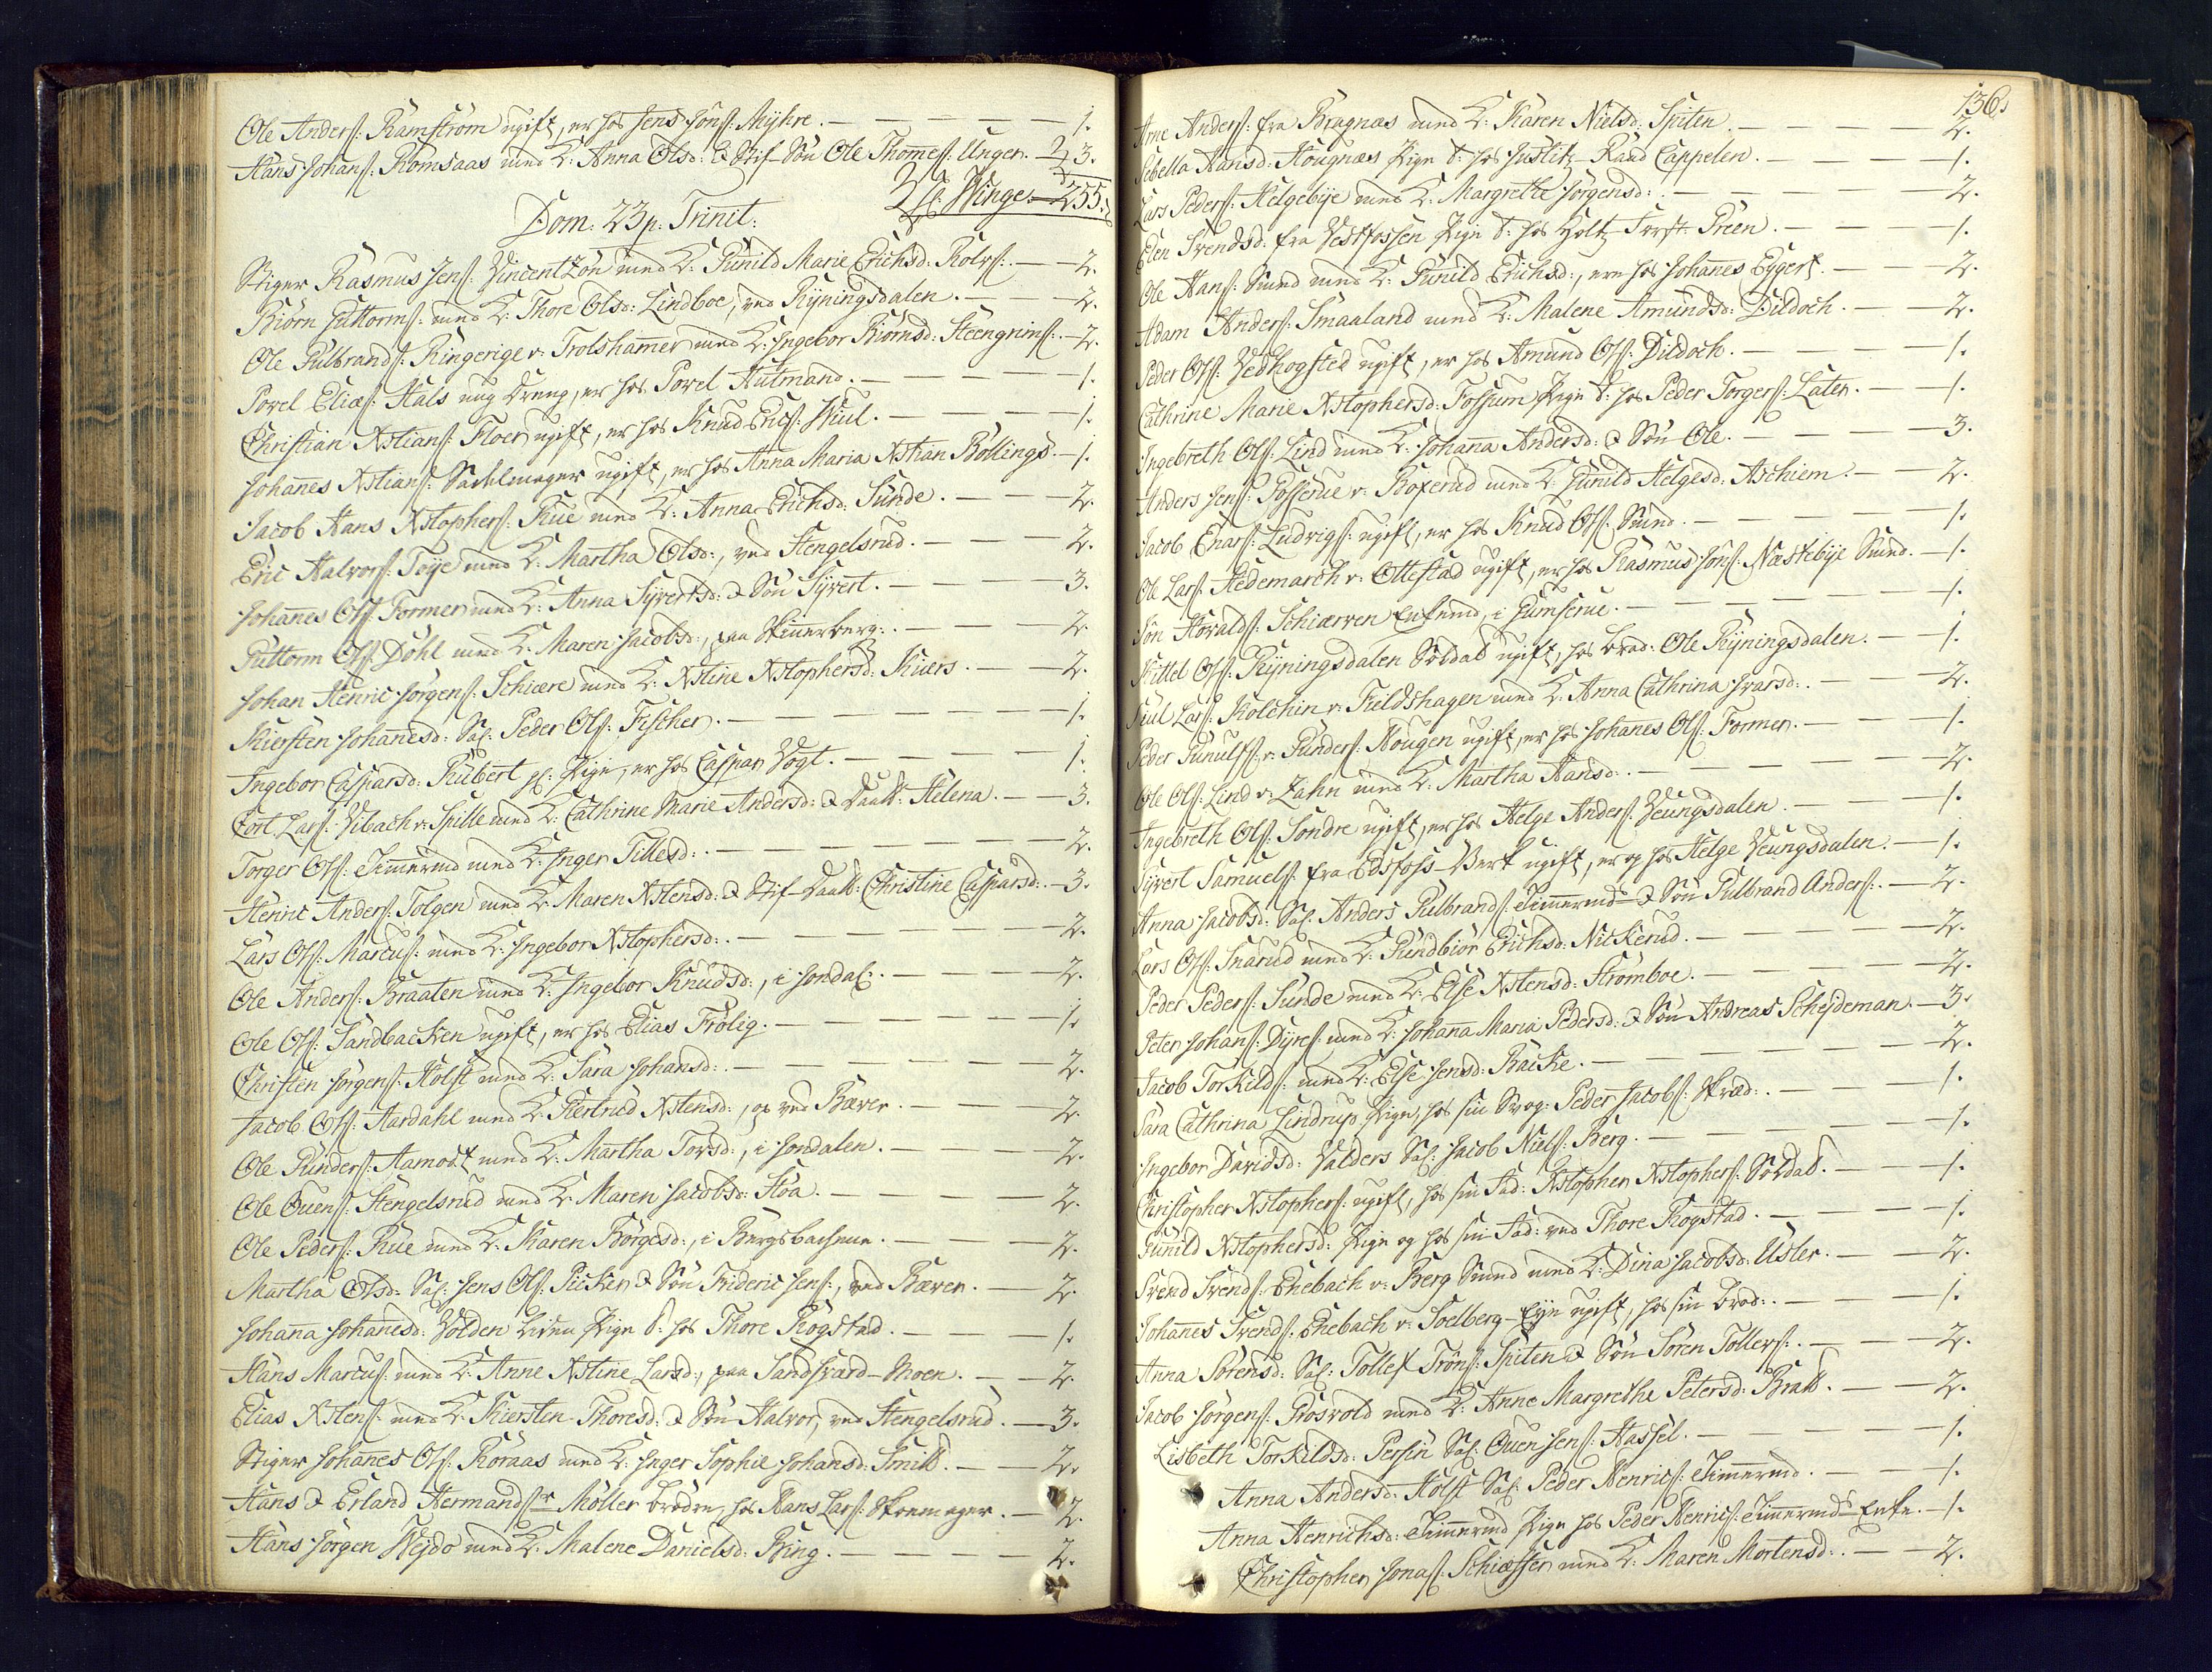 Ole Anders: Ramstrøm ugift, er hos Jens Jøns: Myhre. — 1.
Hans Johans: Romsaas med K: Anna Olsd: & Stif-Søn Ole Thomes: Unger. — 3.
Winge. 255.
Dom: 23 p: Trinit:
Stiger Rasmus Jens: Vincentzøn med K: Gunild Marie Erichsd: Rolvs: — 2.
Biørn Guttorms: med K: Thore Olsd: Lindboe, ved Ryningsdalen. — 2.
Ole Gulbrands: Ringerige v: Trolshamer med K: Ingebor Biørnsd: Steengrims: — 2.
Povel Elias: Hals ung dreng, er hos Povel Hutmand. — 1.
Christian Xstians: Floer ugift, er hos Knud Erics: Kiul. — 1.
Johanes Xstians: Sadelmager ugift, er hos Anna Maria Xstian Bøllings. — 1.
Jacob Hans Xstophers: Rue med K: Anna Erichsd: Sunde. — 2.
Eric Halvors: Teye med K: Martha Olsd:, ved Stengelsrud. — 2.
Johanes Ols: Former med K: Anna Syvertsd: & Søn Syvert. — 3.
Guttorm Ols: Døhl med K: Maren Jacobsd:, paa Skinerberg: — 2.
Johan Henric Jørgens: Schiære med K: Xstine Xstophersd: Kiærs. — 2.
Kiersten Johanesd: Sal: Peder Ols: Fischer. — 1.
Ingebor Caspersd: Rubert Pige, er hos Caspar Vogt. — 1.
Cort Lars: Vibach v: Spille med K: Cathrine Marie Andersd: & Daatt: Helena. — 3.
Torger Ols: Timermd med K: Inger Tillesd: — 2.
Henric Anders: Tolgen med K: Maren Xstensd: & Stif-Daatt: Christine Caspersd: — 3.
Lars Ols: Marcus: med K: Ingebor Xstophersd: — 2.
Ole Anders: Braaten med K: Ingebor Knudsd:, i Jondal: — 2.
Ole Ols: Sandbacken ugift, er hos Elias Frølig. — 1.
Christen Jørgens: Holst med K: Sara Johansd: — 2.
Jacob Ols: Aardahl med K: Giertrud Xstensd:, og ved Bæver. — 2.
Ole Gunders: Aamodt med K: Martha Torsd:, i Jondalen. — 2.
Ole Ouens: Stengelsrud med K: Maren Jacobsd: Floa. — 2.
Ole Peders: Rue med K: Karen Børgesd:, i Bergsbachene. — 2.
Martha Olsd: Sal: Jens Ols: Picker & Søn Frideric Jens:, ved Bæver. — 2.
Johana Johanesd: Volden liden Pige d: hos Thore Rogstad. — 1.
Hans Marcus: med K: Anne Xstine Larsd:, paa Sandsværd-Moen. — 2.
Elias Xstens: med K: Kiersten Thoresd: & Søn Halvor, ved Stengelsrud. — 3.
Stiger Johanes Ols: Roraas med K: Inger Sophie Johansd: Smitt. — 2.
Hans & Erland Hermands: Møller brødre, hos Hans Lars: Skoemager. — 2.
Hans Jørgen Wejdo med K: Malene Danielsd: Ring. — 2.
136.
Arne Anders: fra Bragnæs med K: Karen Nielsd: Spiten. — 2.
Sebella Hansd: Hougnæs Pige d: hos Justitz-Raad Cappelen. — 1.
Lars Peders: Helgebye med K: Margrethe Jørgensd: — 2.
Elen Svendsd: fra Vestfossen Pige d: hos Holtz-Først: Preen. — 1.
Ole Hans: Smed med K: Gunild Erichsd:, ere hos Johanes Eggert. — 2.
Adam Anders: Smaaland med K: Malene Amundsd: Dildoch. — 2.
Peder Ols: Vedhogsted ugift, er hos Amund Ols: Dildoch. — 1.
Cathrine Marie Xstophersd: Fossum Pige d: hos Peder Torgers: Later. — 1.
Ingebreth Ols: Lind med K: Johana Andersd: & Søn Ole. — 3.
Anders Jens: Gosserue v: Boxerud med K: Gunild Helgesd: Aschiem. — 2.
Jacob Enars: Ludvigs: ugift, er hos Knud Ols: Smed. — 1.
Ole Lars: Hedemarch v: Ottestad ugift, er hos Rasmus Jøns: Næstebye Smed. — 1.
Jøn Hovalds: Schiærven Enkemd, i Gumserue. — 1.
Kittel Ols: Ryningsdalen Soldat ugift, hos brod: Ole Ryningsdalen. — 1.
Kiul Lars: Kolchin v: Fieldshagen med K: Anna Cathrina Ivarsd: — 2.
Peder Gunulfs: v: Gunders: Hougen ugift, er hos Johanes Ols: Former. — 1.
Ole Ols: Lind v: Zahn med K: Martha Hansd: — 2.
Ingebreth Ols: Søndre ugift, er hos Helge Anders: Veungsdalen. — 1.
Syvert Samuels: fra Edsfoss-Verk ugift, er og hos Helge Veungsdalen. — 1.
Anna Jacobsd: Sal: Anders Gulbrands: Timermd & Søn Gulbrand Anders: — 2.
Lars Ols: Snarud med K: Gundbiør Erichsd: Nickerud. — 2.
Peder Peders: Sunde med K: Else Xstensd: Strømboe. — 2.
Peter Johans: Dyres: med K: Johana Maria Pedersd: & Søn Andreas Schejdeman. — 3.
Jacob Torkilds: med K: Else Jensd: Backe. — 2.
Sara Cathrina Lindrup Pige, hos sin Svog: Peder Jacobs: Skræd: — 1.
Ingebor Davidsd: Valders Sal: Jacob Niels: Berg. — 1.
Christopher Xstophers: ugift, hos sin Fad: Xstopher Xstophers: Soldat. — 1.
Gunild Xstophersd: Pige og hos sin Fad: ved Thore Rogstad. — 1.
Svend Svends: Enebach v: Berg Smed med K: Dina Jacobsd: Usler. — 2.
Johanes Svends: Enebach v: Soelberg-Eyje ugift, hos sin brod: — 1.
Anna Sørensd: Sal: Tollef Trøns: Spiten & Søn Søren Tollevs: — 2.
Jacob Jørgens: Grosvold med K: Anne Margrethe Petersd: Bratt. — 2.
Lisbeth Torkildsd: Persin Sal: Ouen Jens: Hassel. — 1.
Anna Andersd: Holst Sal: Peder Henrics: Timermd. — 1.
Anna Henrichsd: Timermd Pige hos Peder Henrics: Timermds Enke. — 1.
Christopher Jonas: Schiæsser med K: Maren Mortensd: — 2.